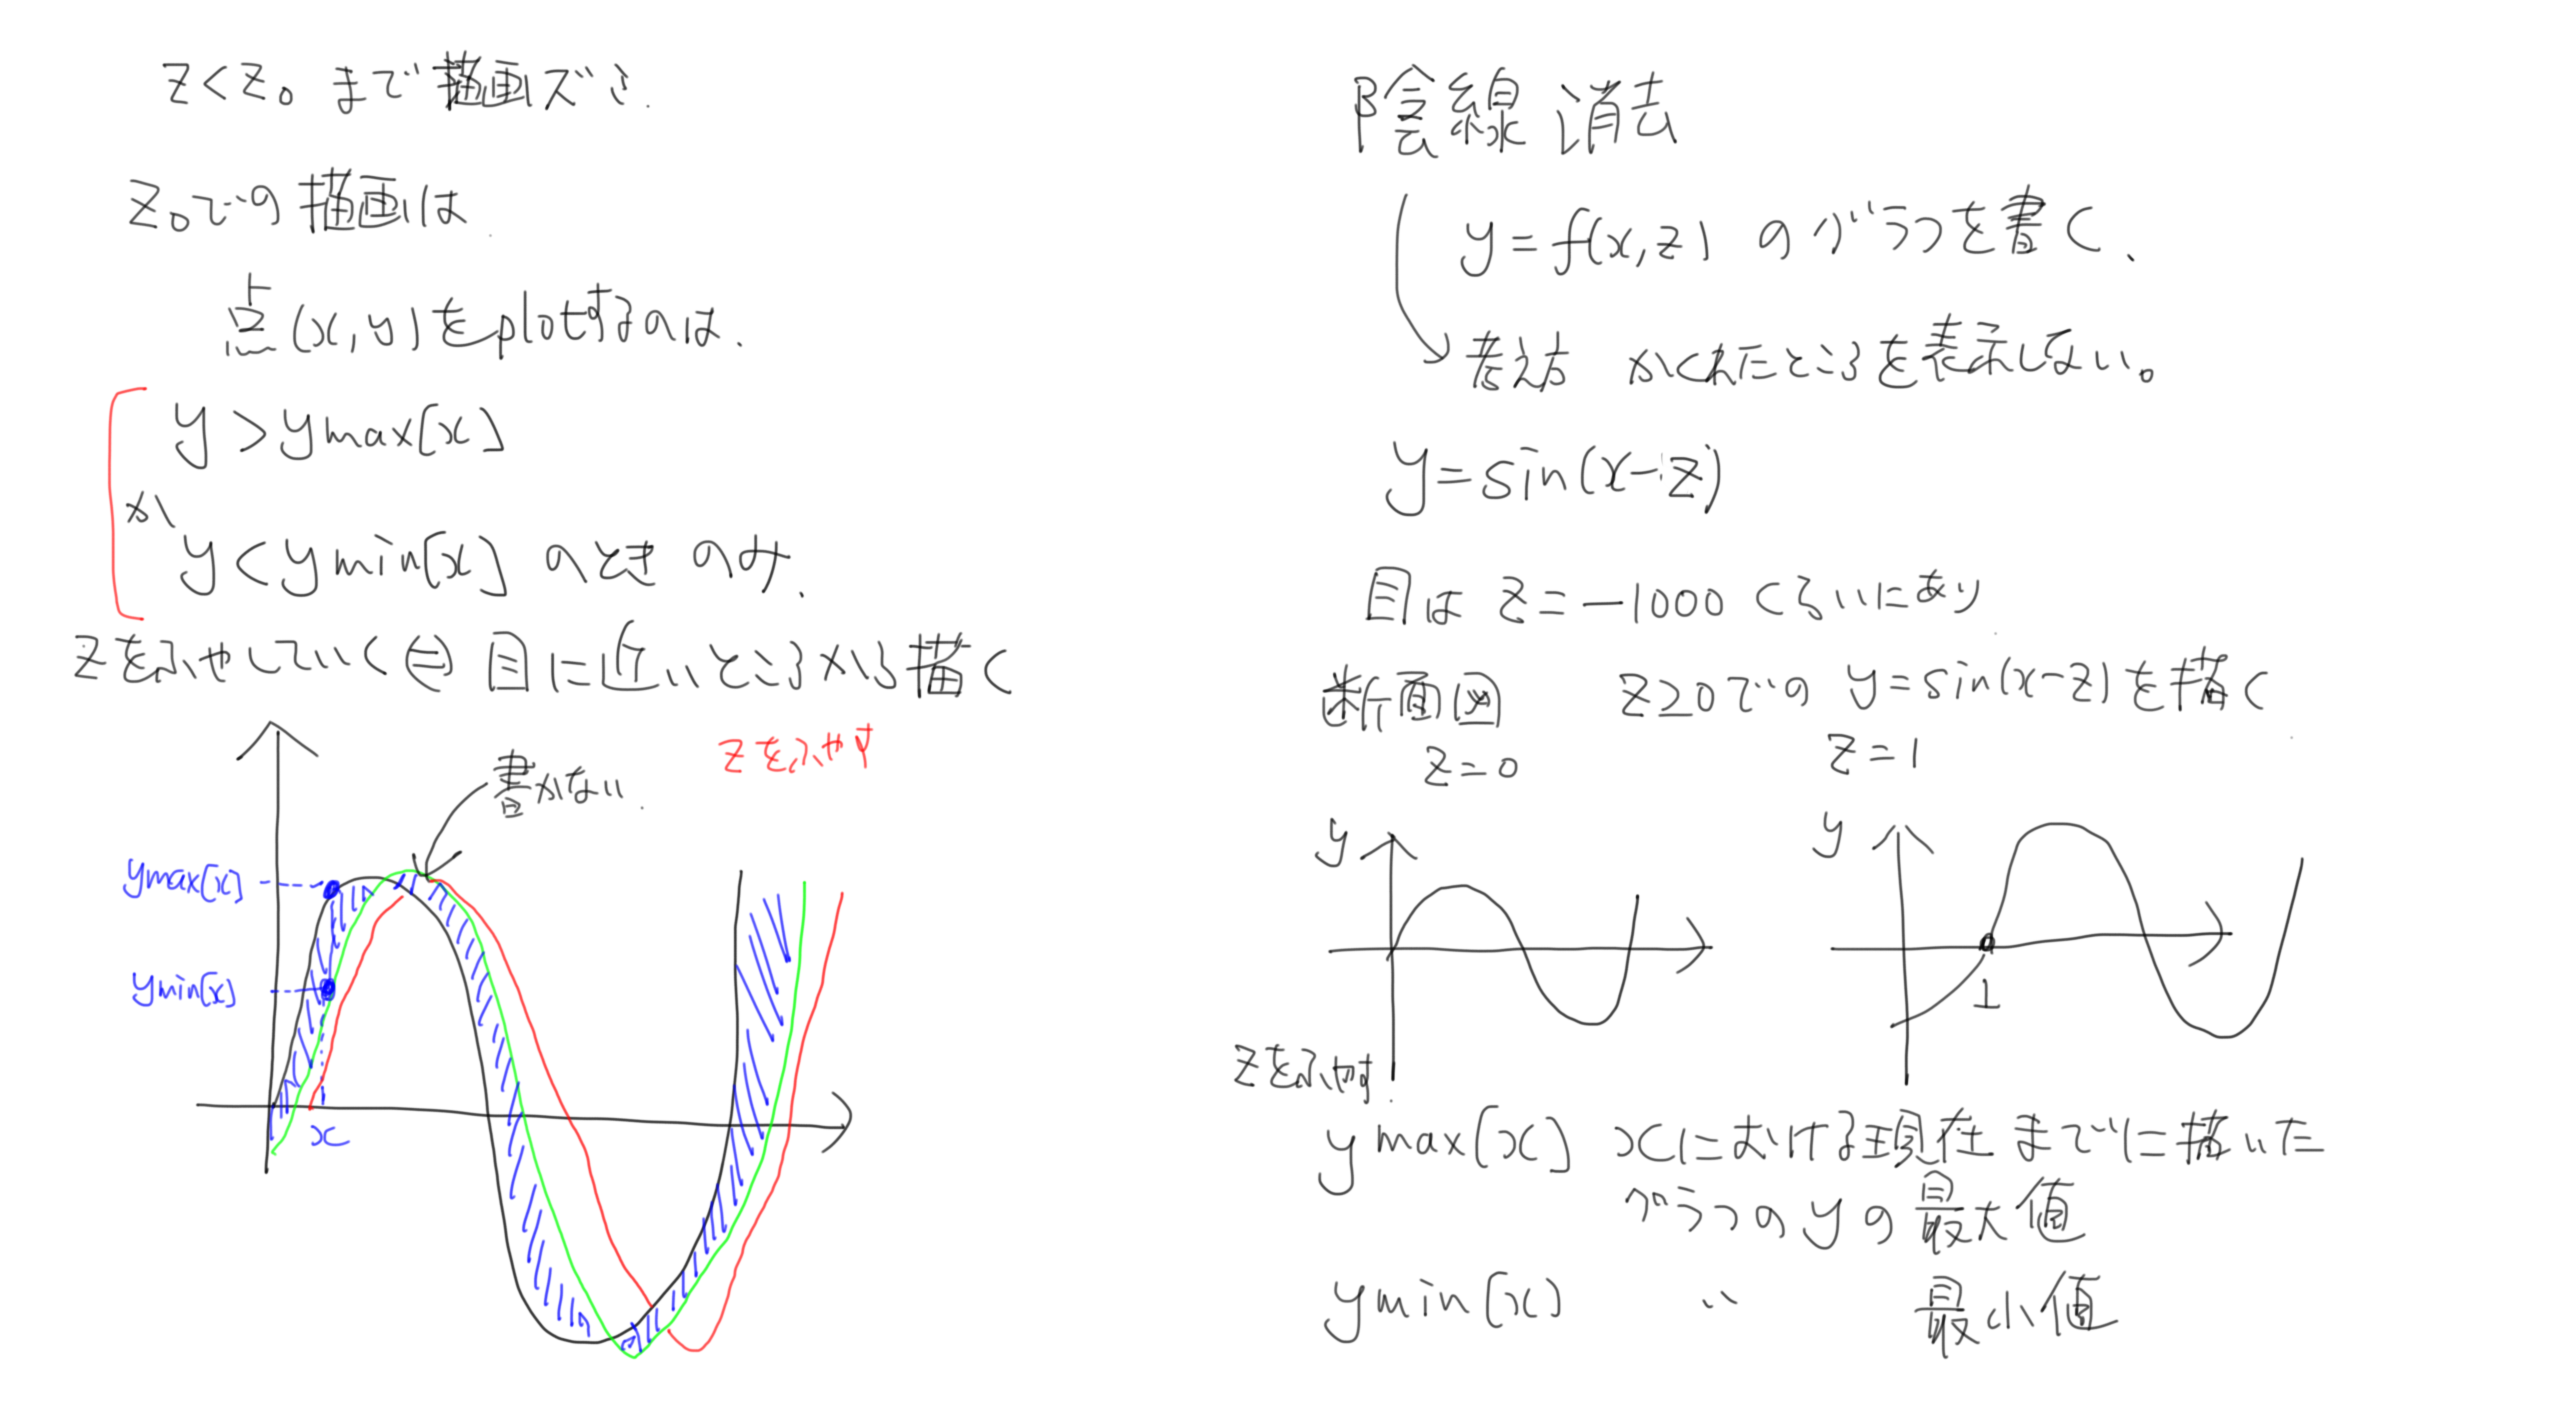 陰線消去
y=f(x,z) のグラフを書く、
考え方 かくれたところを表示しない。
y=sin(x-z)
目は z=-1000 くらいにあり
断面図 z≥0での y=sin(x-z)を描く
z=0
z=1
y
y
1
zをふやす.
ymax[x] xにおける現在までに描いた
グラフのyの最大値
ymin[x] 〃 最小値
z<z₀まで描画ズミ.
z₀での描画は
点(x,y)をplotするのは.
y>ymax[x]
か
y<ymin[x] のときのみ.
zをふやしていく⇔目に近いところから描く
zをふやす
書かない.
ymax[x]
ymin[x]
x